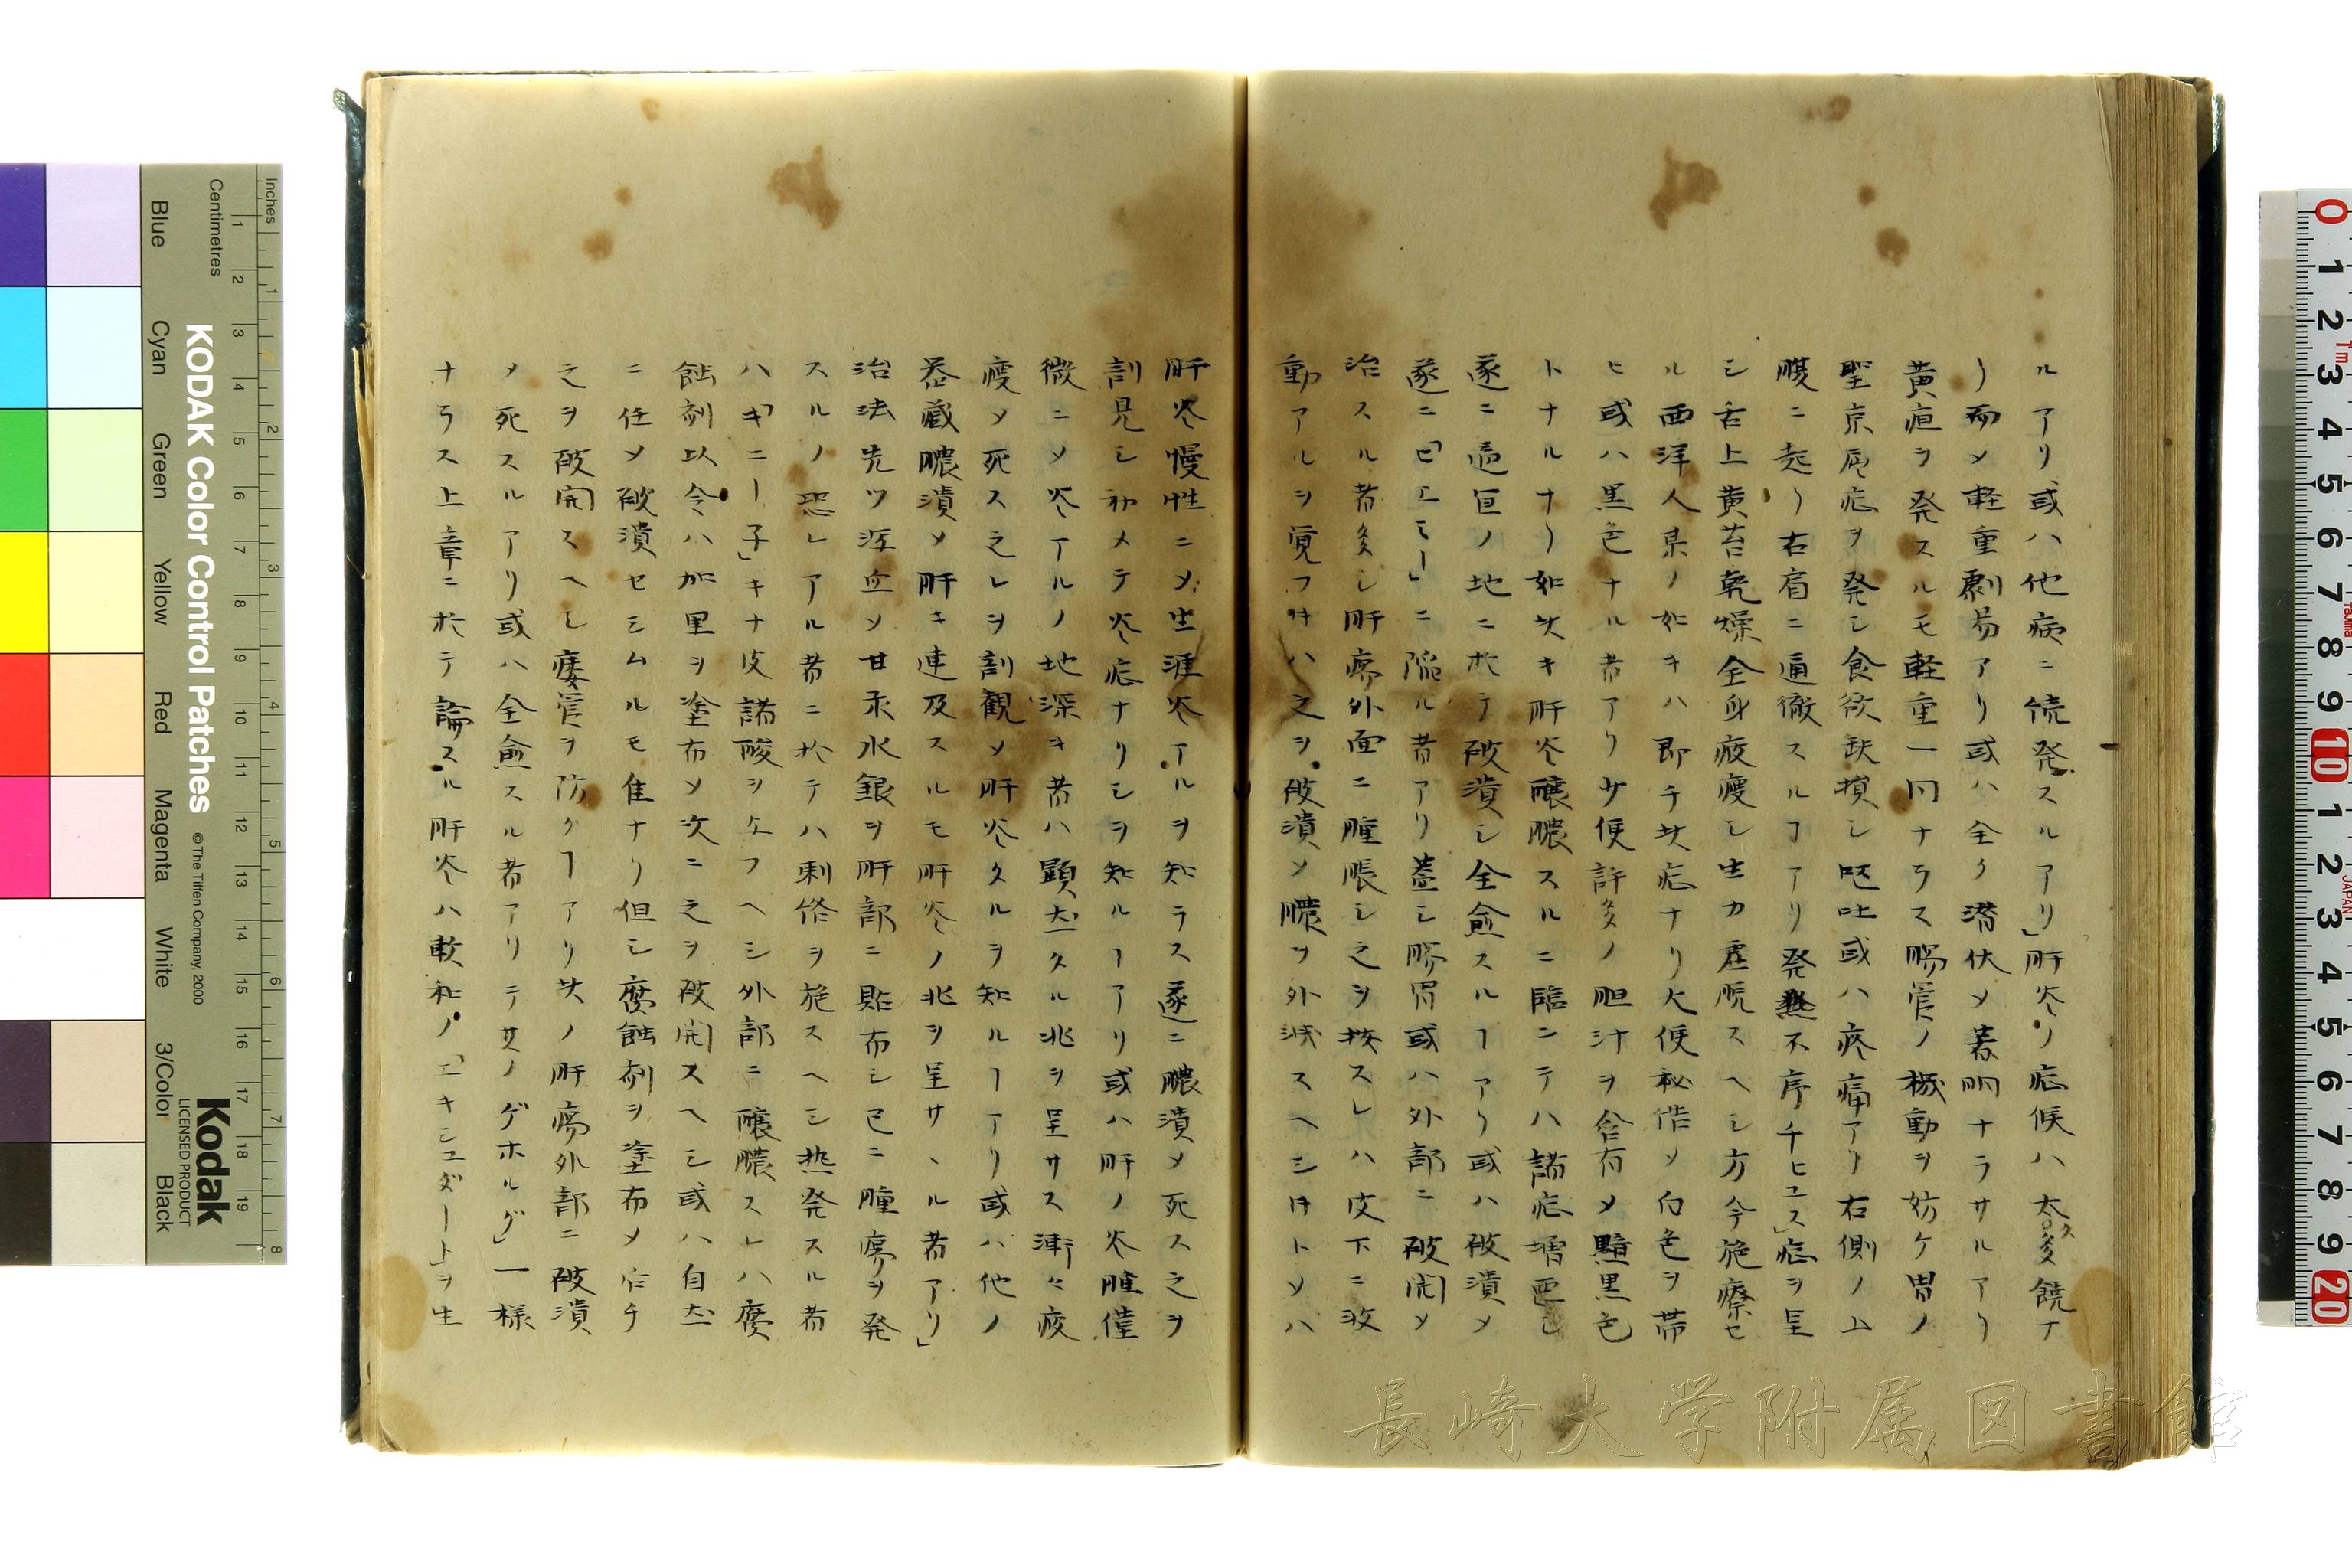 ルアリ或ハ他病ニ続発スルアリ」肝炎ノ症候ハ太タ多饒ナ
リ而メ軽重劇易アリ或ハ全ク潜伏メ著明ナラサルアリ
黄疸ヲ発スルモ軽重一同ナラス腸管ノ機動ヲ妨ケ胃ノ
症ヲ発シ食欲缺損シ嘔吐或ハ疼痛アリ右側ノ上
腹ニ起リ右肩ニ通徹スルヿアリ発熱不序チヒユス」症ヲ呈
シ舌上黄苔乾燥全身疲痩シ生力虚脱スヘシ方今施療セ
ル西洋人某ノ如キハ即チ此症ナリ大便秘結メ白色ヲ帯
ヒ或ハ黒色ナル者アリ此便許多ノ胆汁ヲ含有メ黯黒色
トナルナリ如此キ肝炎醸膿スルニ臨ンテハ諸症増悪シ
遂ニ適宜ノ地ニ於テ破潰シ全愈スルヿアリ或ハ破潰メ
遂ニ「ピエミー」ニ陥ル者アリ蓋シ腸胃或ハ外部ニ破開メ
治スル者多シ肝瘍外面ニ腫脹シ之ヲ按スレハ皮下ニ波
動アルヲ覚フ時ハ之ヲ破潰メ膿ヲ外泄スヘシ時トメハ
肝炎慢性ニメ生涯炎アルヲ知ラス遂ニ膿潰メ死ス之ヲ
割見シ初メテ炎症ナリシヲ知ルヿアリ或ハ肝ノ炎雖僅
微ニメ炎アルノ地深キ者ハ顕然タル兆ヲ呈サス漸々疲
痩メ死ス之レヲ割観メ肝炎タルヲ知ルヿアリ或ハ他ノ
蔵膿潰メ肝ニ連及スルモ肝炎ノ兆ヲ呈サヽル者アリ」
治法先ツ瀉血メ甘汞水銀ヲ肝部ニ貼布シ已ニ腫瘍ヲ発
スルノ恐レアル者ニ於テハ刺絡ヲ施スヘシ熱発スル者
ハ「キニー子」キナ皮諸酸ヲ与フヘシ外部ニ醸膿スレハ腐
蝕剤以令ハ加里ヲ塗布メ次ニ之ヲ破開スヘシ或ハ自然
ニ任メ破潰セシムルモ佳ナリ但シ腐蝕剤ヲ塗布メ后チ
之ヲ破開スヘシ瘻管ヲ防クヿアリ此ノ肝瘍外部ニ破潰
メ死スルアリ或ハ全愈スル者アリテ其ノゲホルグ」一様
ナラス上章ニ於テ論スル肝炎ハ軟和ノ「エキシユダート」ヲ生
長崎大学附属図書館
KODAK Color Control Patches
© The Tiffen Company, 2000
Kodak
LICENSED PRODUCT
Inches
Centimetres
Blue
Cyan
Green
Yellow
Red
Magenta
White
3/Color
Black